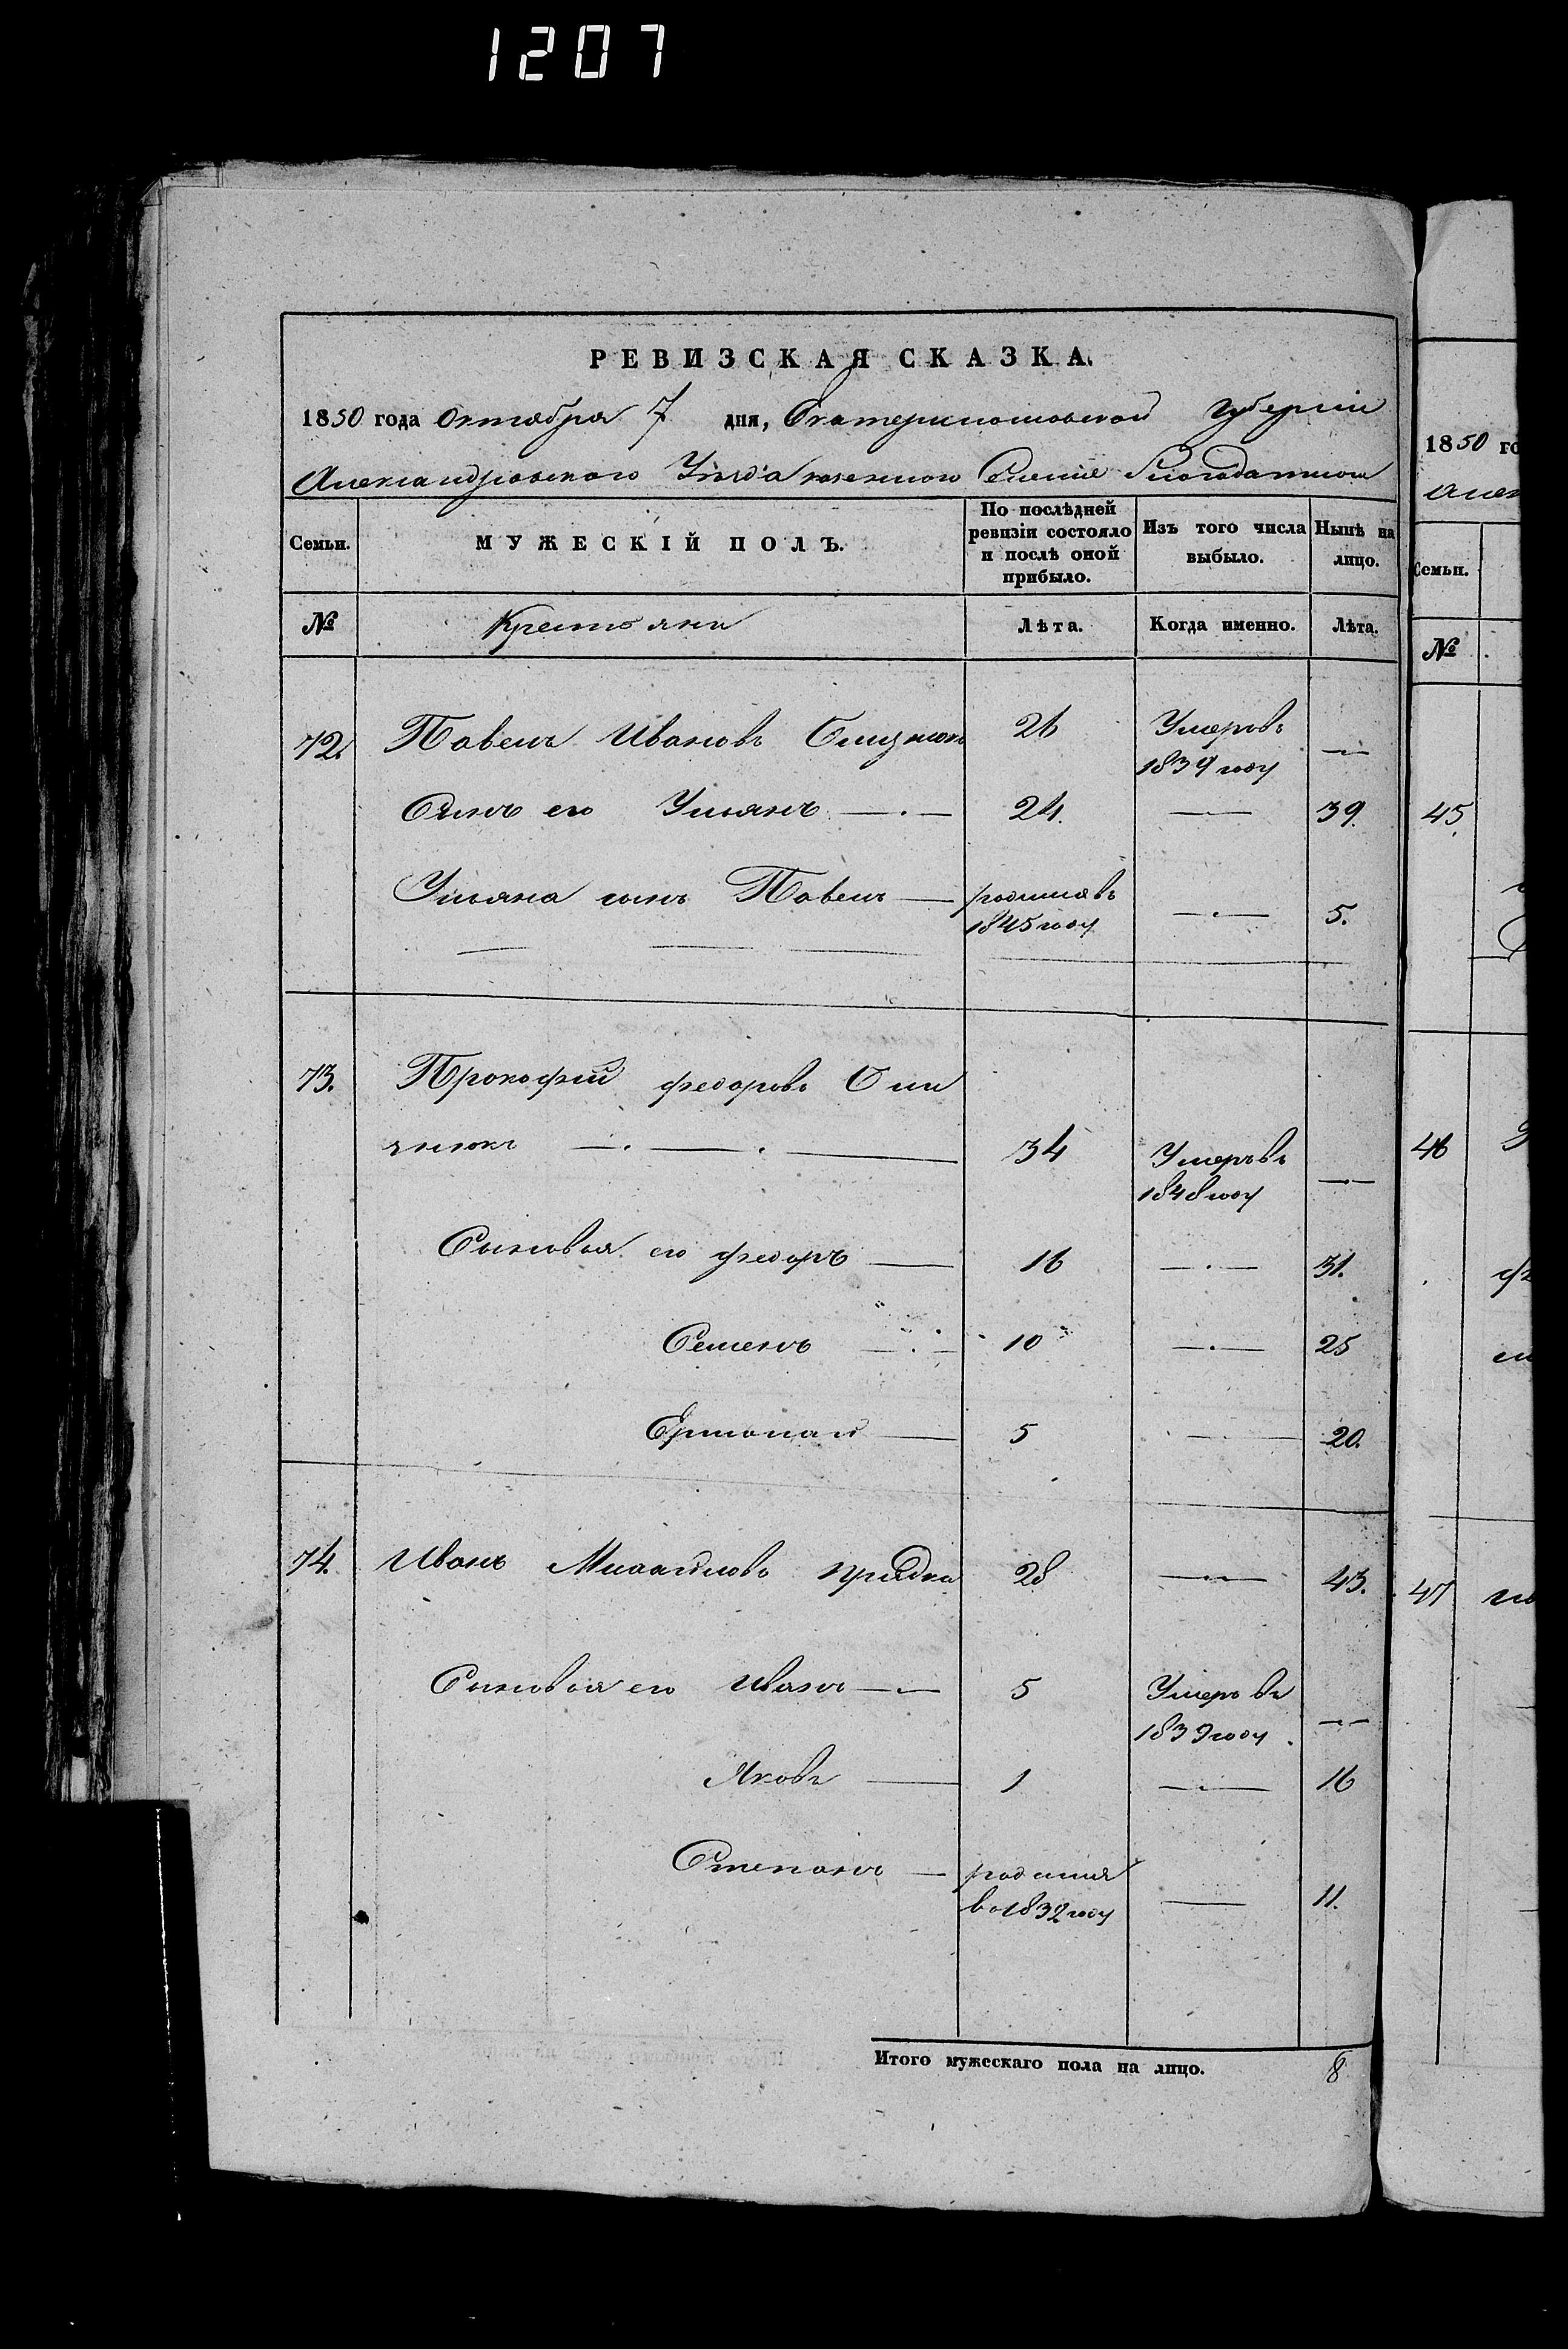 1207
РЕВИЗСКАЯ СКАЗКА.
1850 года Октября 7 дня, Екатеринославской Губернии
Александровского Уезда казенного Селения Благодатного
Семьи. МУЖЕСКІЙ ПОЛЪ. По послѣдней ревизіи состояло и послѣ оной прибыло. Изъ того числа выбыло. Нынѣ на лицо.
№ Крестьяни Лѣта. Когда именно. Лѣта.
72. Павелъ Ивановъ 26 Умеръ въ 1839 году —
Сынъ его Ульянъ — 24. — 39.
Ульяна сынъ Павелъ — родился въ 1845 году — 5.
73. Прокофій Федоровъ
34 Умеръ въ 1848 году —
Сыновья его Федоръ — 16 — 31.
Семенъ — 10 — 25
Ермолай — 5 — 20.
74. Иванъ Михайловъ 28 — 43.
Сыновья его Иванъ — 5 Умеръ въ 1839 году —
Яковъ — 1 — 16
Степанъ — родился в 1832 году — 11.
Итого мужескаго пола на лицо. 8
1850 го
Алек
Семьи.
№
45.
46
47